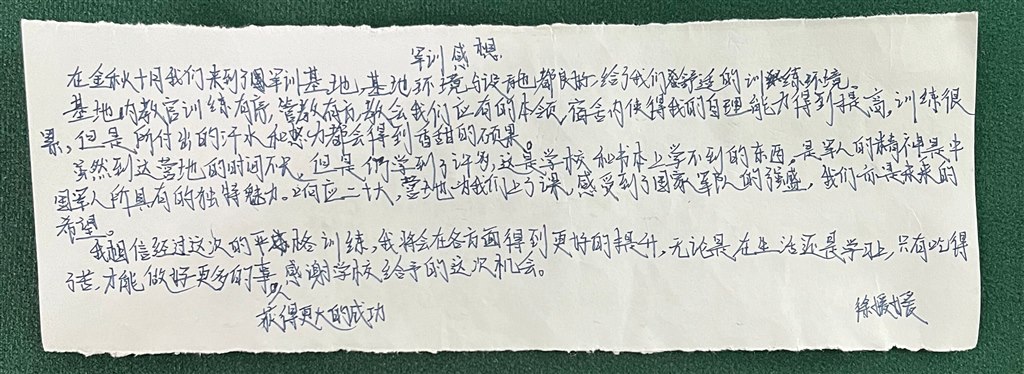 军训感想
在金秋十月我们来到了国军训基地,基地环境与设施都良好,给了我们舒适的训练环境。
基地内教官训练有序,管教有方,教会我们应有的本领,宿舍内使得我的自理能力得到提高,训练很
累,但是所付出的汗水和努力都会得到香甜的硕果。
虽然到这营地的时间不长,但是们学到了许多,这是学校和书本上学不到的东西,是军人的精神是中
国军人所具有的独特魅力。响应二十大,营地为我们上了课,感受到了国家军队的强盛,我们亦是未来的
希望。
我相信经过这次的训练,我将会在各方面得到更好的提升,无论是在生活还是学习上,只有吃得
了苦,才能做好更多的事感谢学校给予的这次机会。
获得更大的成功
徐媛媛